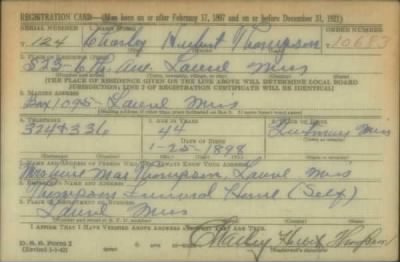 REGISTRATION CARD—(Men born on or after February 17, 1897 and on or before December 31, 1921)
SERIAL NUMBER 1. NAME (Print) ORDER NUMBER
T 124 Charley Hubert Thompson 10683
2. PLACE OF RESIDENCE (Print)
523-6th Ave. Laurel Miss
(THE PLACE OF RESIDENCE GIVEN ON THE LINE ABOVE WILL DETERMINE LOCAL BOARD
JURISDICTION; LINE 2 OF REGISTRATION CERTIFICATE WILL BE IDENTICAL)
3. MAILING ADDRESS
Box 1095-Laurel Miss
[Mailing address if other than place indicated on line 2. If same insert word same]
4. TELEPHONE 5. AGE IN YEARS 6. PLACE OF BIRTH
44 Miss
DATE OF BIRTH
1-25-1898
7. NAME AND ADDRESS OF PERSON WHO WILL ALWAYS KNOW YOUR ADDRESS
Mae Thompson, Laurel Miss
8. EMPLOYER'S NAME AND ADDRESS
Thompson Funeral Home (Self)
9. PLACE OF EMPLOYMENT OR BUSINESS
Laurel Miss
I AFFIRM THAT I HAVE VERIFIED ABOVE ANSWERS AND THAT THEY ARE TRUE.
D. S. S. FORM 1
(Revised 1-1-42) (over)
Charley Hubert Thompson
(Registrant's signature)